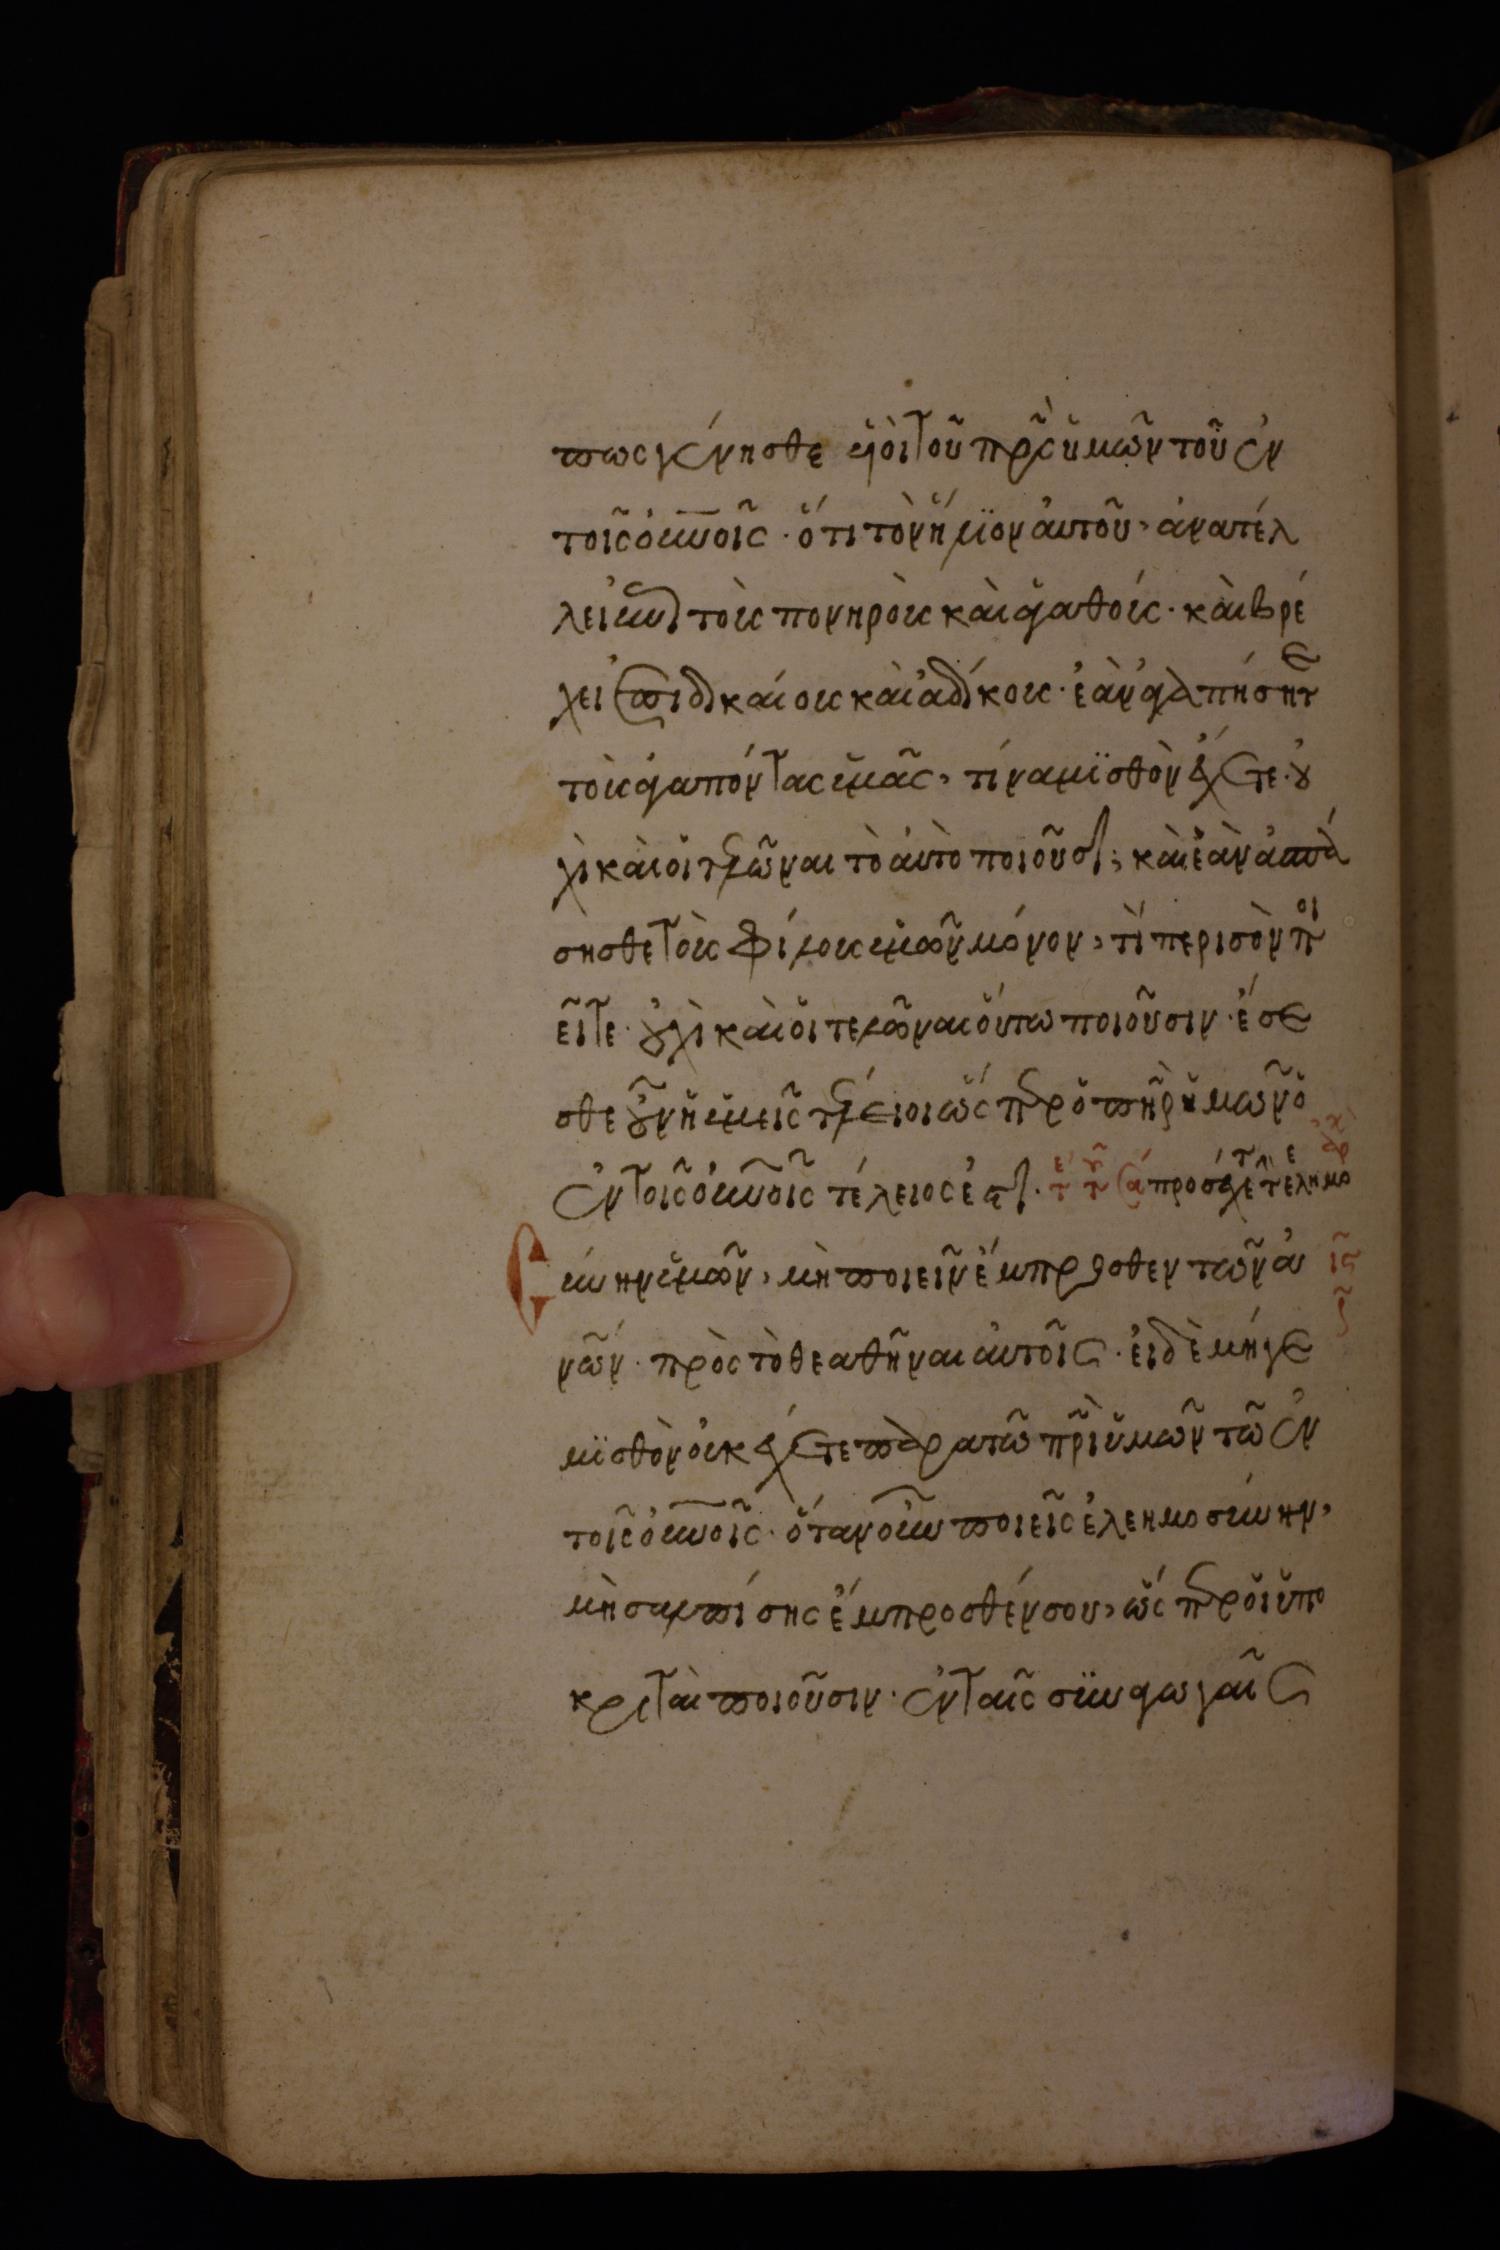 πως γένησθε υἱοὶ τοῦ πρ̅ς ὑμῶν τοῦ ἐν
τοῖς οὐνοῖς · ὅτι τὸν ἥλϊον αὐτοῦ, ἀνατέλ
λει ἐπὶ τοὺς πονηροὺς καὶ ἀγαθούς · καὶ βρέ
χει ἐπὶ δικαίους καὶ ἀδίκους · ἐὰν ἀγαπήσητε
τοὺς ἀγαπόντας ὑμᾶς, τίνα μϊσθὸν ἔχετε · οὐ
χὶ καὶ οἱ τελῶναι τὸ αὐτὸ ποιοῦσι; καὶ ἐὰν ἀσπά
σησθε τοὺς φίλους ὑμῶν μόνον, τί περισὸν ποι
εῖτε · οὐχὶ καὶ οἱ τελῶναι οὕτω ποιοῦσιν · ἔσε
σθε οὖν ὑμεῖς τέλειοι ὥσπερ ὁ πηρ ὑμῶν ὁ
ἐν τοῖς οὐνοῖς τέλειός ἐστι · προσέχετε τ ἐλημο
σύνην ὑμῶν, μὴ ποιεῖν ἔμπροσθεν τῶν ἀ
νῶν · πρὸς τὸ θεαθῆναι αὐτοῖς · εἰδὲ μήγε
μϊσθὸν οὐκ ἔχετε παρα τῶ πρ̅ὶ ὑμῶν τῶ ἐν
τοῖς οὐνοῖς · ὅταν οὖν ποιεῖς ἐλεημοσύνην,
μὴ σαλπίσης ἔμπροσθέν σου, ὥσπερ οἱ ὑπο
κριταὶ ποιοῦσιν · ἐν ταῖς σϋναγωγαῖς